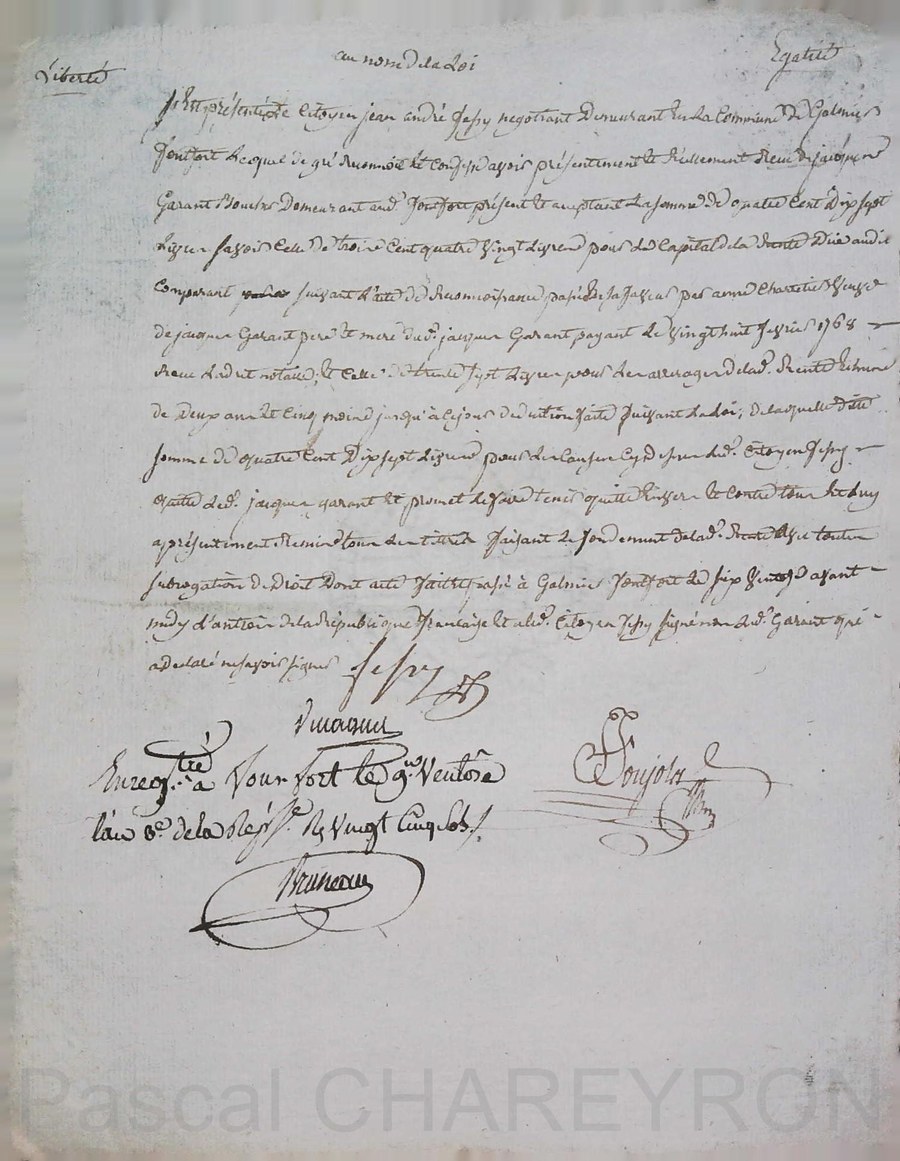 Liberté au nom de la Loi Egalité
S'est présenté le Citoyen jean andré Jessy negotiant Demeurant En La Commune de Galmier
fonfort Lequel de gré Reconnoit Et Confesse avoir présentement Et Réellement Receu de jacques
Garant Demeurant aud. fonfort présent Et acceptant La somme De quatre Cent Dix sept
Livres savoir Celle De trois Cent quatre Vingt Livres pour Le Capital de la Rente Düe audit
Comparant suivant L'acte De Reconnoissance passé En sa faveur par anne Charetier Veuve
de jacques Garant pere Et mere dud. jacques Garant payant Le Vingt huit fevrier 1768
Receu Ledit notaire, Et Celle De trente sept Livres pour Les arrerages de lad. Rente
de Deux ans Et Cinq mois jusqu'à Ce jour deduction faite suivant La Loi, De laquelle ditte
somme de quatre Cent Dix sept Livres pour Les Causes Cy Dessus Led. Citoyen Jessy
quitte Led. jacques garant Et promet Le faire tenir quitte Envers Et Contre tous Et Luy
a présentement Remis tous Les titres faisant Le fondement de lad. Rente avec toutes
subrogation De Droit Dont acte fait Et passé à Galmier fonfort Le six Ventose avant
midy L'an trois de la République française Et a led. Citoyen Jessy signé non Led. Garant qui
a declaré ne savoir signer
Jessy
Enreg.tré à Fonfort le 9 Ventose
l'an 3e de la Rep. R. Vingt Cinq Sols
Bruneau
Pascal CHAREYRON